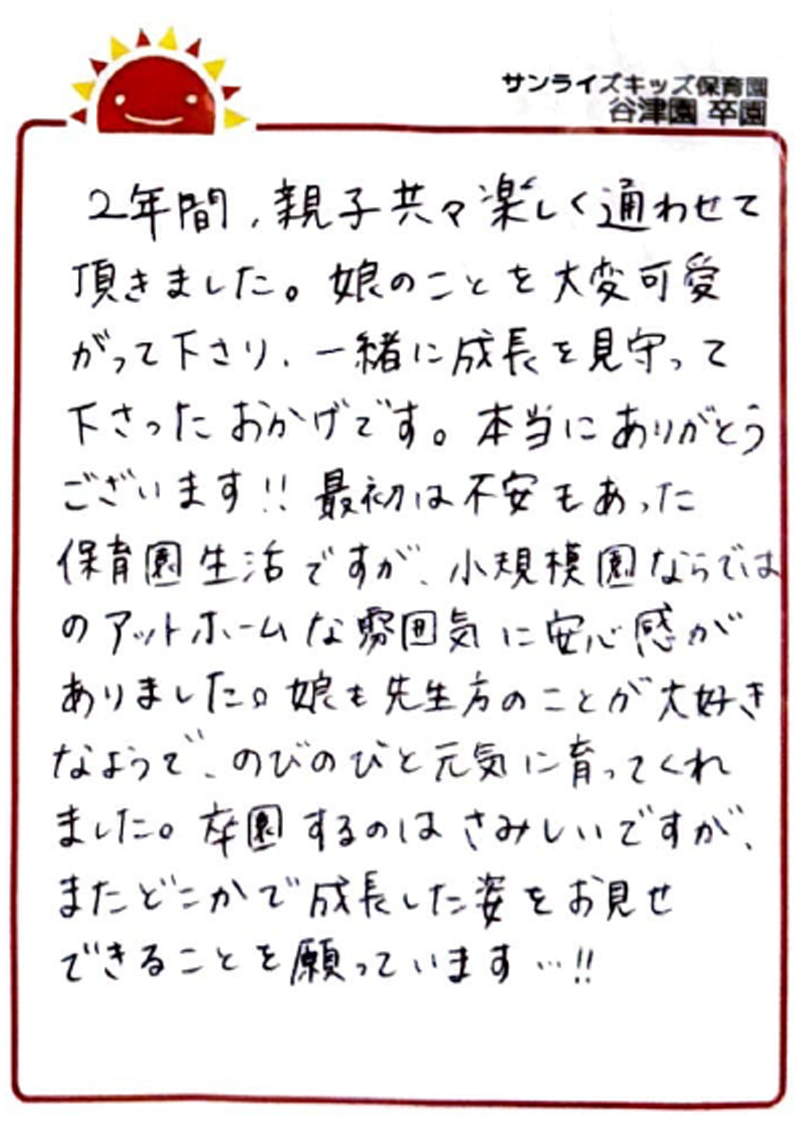 サンライズキッズ保育園
谷津園 卒園
2年間、親子共々楽しく通わせて
頂きました。娘のことを大変可愛
がって下さり、一緒に成長を見守って
下さったおかげです。本当にありがとう
ございます!! 最初は不安もあった
保育園生活ですが、小規模園ならでは
のアットホームな雰囲気に安心感が
ありました。娘も先生方のことが大好き
なようで、のびのびと元気に育ってくれ
ました。卒園するのはさみしいですが、
またどこかで成長した姿をお見せ
できることを願っています…!!